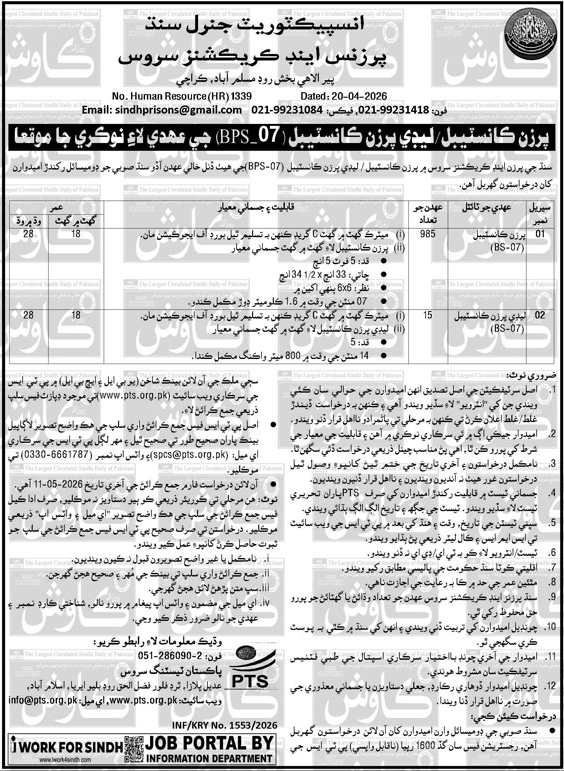 انسپيڪٽوريٽ جنرل سنڌ
پرزنس اينڊ ڪريڪشنز سروس
پير الاهي بخش روڊ مسلم آباد، ڪراچي
No. Human Resource(HR) 1339 Dated: 20-04-2026
Email: sindhprisons@gmail.com فون: 021-99231418، فيڪس: 021-99231084
پرزن ڪانسٽيبل/ ليڊي پرزن ڪانسٽيبل (BPS_07) جي عهدي لاءِ نوڪري جا موقعا
سنڌ جي پرزن اينڊ ڪريڪشنز سروس ۾ پرزن ڪانسٽيبل/ ليڊي پرزن ڪانسٽيبل (BPS-07) جي هيٺ ڏنل خالي عهدن آڏو سنڌ صوبي جو ڊوميسائل رکندڙ اميدوارن
کان درخواستون گهربل آهن.
سيريل نمبر
عهدي جو ٽائٽل
عهدن جو تعداد
قابليت ۽ جسماني معيار
عمر
گهٽ ۾ گهٽ
وڌ ۾ وڌ
01
پرزن ڪانسٽيبل
(BS-07)
985
(i) ميٽرڪ گهٽ ۾ گهٽ C گريڊ ڪنهن به تسليم ٿيل بورڊ آف ايجوڪيشن مان.
(ii) پرزن ڪانسٽيبل لاءِ گهٽ ۾ گهٽ جسماني معيار
● قد: 5 فوٽ 5 انچ
● ڇاتي: 33 انچ x 34 1/2 انچ
● نظر: 6x6 ٻنهي اکين ۾
● 07 منٽن جي وقت ۾ 1.6 ڪلوميٽر ڊوڙ مڪمل ڪندو.
18
28
02
ليڊي پرزن ڪانسٽيبل
(BS-07)
15
(i) ميٽرڪ گهٽ ۾ گهٽ C گريڊ ڪنهن به تسليم ٿيل بورڊ آف ايجوڪيشن مان.
(ii) ليڊي پرزن ڪانسٽيبل لاءِ گهٽ ۾ گهٽ جسماني معيار
● قد: 5
● 14 منٽن جي وقت ۾ 800 ميٽر واڪنگ مڪمل ڪندا.
18
28
ضروري نوٽ:
1. اصل سرٽيفڪيٽن جي اصل تصديق انهن اميدوارن جي حوالي سان ڪئي
ويندي جن کي "انٽرويو" لاءِ سڏيو ويندو آهي ۽ ڪنهن به درخواست ڏيندڙ
غلط/ غلط اعلان ڪرڻ تي ڪنهن به مرحلي تي پڻ نااهل قرار ڏنو ويندو.
2. اميدوار جيڪي اڳ ۾ ئي سرڪاري نوڪري ۾ آهن ۽ قابليت جي معيار جي
شرط کي پورو ڪن ٿا، اهي پڻ مناسب چينل ذريعي درخواست ڏئي سگهن ٿا.
3. نامڪمل درخواستون ۽ آخري تاريخ جي ختم ٿيڻ کانپوءِ وصول ٿيل
درخواستون غور هيٺ نه آنديون وينديون ۽ نااهل قرار ڏنيون وينديون.
4. جسماني ٽيسٽ ۾ قابليت رکندڙ اميدوارن کي صرف PTS پاران تحريري
ٽيسٽ لاءِ سڏيو ويندو. ٽيسٽ جي جڳهه ۽ تاريخ الڳ الڳ ٻڌائي ويندي.
5. سڀني ٽيسٽن جي تاريخ، وقت ۽ هنڌ کي بعد ۾ پي ٽي ايس جي ويب سائيٽ
تي ايس ايم ايس ۽ ڪال ليٽر ذريعي پڻ ٻڌايو ويندو.
6. ٽيسٽ/ انٽرويو لاءِ ڪو به ٽي اي/ ڊي اي نه ڏنو ويندو.
7. اقليتي ڪوٽا سنڌ حڪومت جي پاليسي مطابق رکيو ويندو.
8. مٿئين عمر جي حد ۾ ڪا به رعايت جي اجازت ناهي.
9. سنڌ پرزنز اينڊ ڪريڪشنز سروس عهدن جو تعداد وڌائڻ يا گهٽائڻ جو پورو
حق محفوظ رکي ٿي.
10. چونڊيل اميدوارن کي تربيت ڏني ويندي ۽ انهن کي سنڌ ۾ ڪٿي به پوسٽ
ڪري سگهجي ٿو.
11. اميدوار جي آخري چونڊ بااختيار سرڪاري اسپتال جي طبي فٽنيس
سرٽيفڪيٽ سان مشروط هوندي.
12. چونڊيل اميدوار ڏوهاري رڪارڊ، جعلي دستاويزن يا جسماني معذوري جي
صورت ۾ نااهل قرار ڏنا ويندا.
درخواست ڪيئن ڪجي:
● سنڌ صوبي جي ڊوميسائل وارن اميدوارن کان آن لائن درخواستون گهربل
آهن، رجسٽريشن فيس سان گڏ 1600 رپيا (ناقابل واپسي) پي ٽي ايس جي
سڄي ملڪ جي آن لائن بينڪ شاخن (يو بي ايل ۽ ايڇ بي ايل) ۾ پي ٽي ايس
جي سرڪاري ويب سائيٽ (www.pts.org.pk) تي موجود ڊپازٽ فيس سلپ
ذريعي جمع ڪرائڻ لاءِ.
● اصل پي ٽي ايس فيس جمع ڪرائڻ واري سلپ جي هڪ واضح تصوير لاڳاپيل
بينڪ پاران صحيح طور تي صحيح ٿيل ۽ مهر لڳل پي ٽي ايس جي سرڪاري
اي ميل: (spcs@pts.org.pk) ۽ واٽس اپ نمبر (0330-6661787) تي
موڪليو.
● آن لائن درخواست فارم جمع ڪرائڻ جي آخري تاريخ 11-05-2026 آهي.
● نوٽ: هن مرحلي تي ڪوريئر ذريعي ڪو به دستاويز نه موڪليو. صرف ادا ڪيل
فيس جي جمع ڪرائڻ جي سلپ جي هڪ واضح تصوير "اي ميل ۽ واٽس اپ" ذريعي
موڪليو. درخواستن تي صرف پي ٽي ايس فيس جمع ڪرائڻ جي سلپ جو
ثبوت حاصل ڪرڻ کانپوءِ عمل ڪيو ويندو.
i. نامڪمل يا غير واضح تصويرون قبول نه ڪيون وينديون.
ii. جمع ڪرائڻ واري سلپ تي بينڪ جي مُهر ۽ صحيح هجڻ گهرجن.
iii. سڀ متن پڙهڻ لائق هجڻ گهرجن.
iv. اي ميل جي مضمون ۽ واٽس اپ پيغام ۾ پورو نالو، شناختي ڪارڊ نمبر ۽
عهدي جو نالو ضرور ذڪر ڪيو وڃي.
وڌيڪ معلومات لاءِ رابطو ڪريو:
فون: 2-286090-051
پاڪستان ٽيسٽنگ سروس
عديل پلازا، ٽرڊ فلور فضل الحق روڊ بليو ايريا، اسلام آباد.
ويب سائيٽ: www.pts.org.pk، اي ميل: info@pts.org.pk
PTS
INF/KRY No. 1553/2026
i WORK FOR SINDH
www.iwork4sindh.com
JOB PORTAL BY
INFORMATION DEPARTMENT